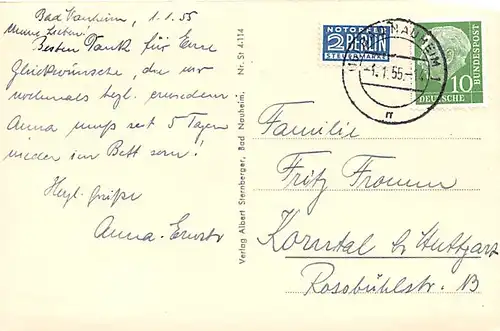 Bad Nauheim, 1.1.55
Meine Lieben!
Besten Dank für Eure
Glückwünsche, die wir
nochmals herzl. erwidern.
Anna muß seit 5 Tagen
wieder im Bett sein!
Herzl. Grüße
Anna - Ernst
Verlag Albert Sternberger, Bad Nauheim, Nr. St 4-114
NOTOPFER
2 BERLIN
STEUERMARKE
BAD NAUHEIM
-1.1.55-
10
DEUTSCHE
BUNDESPOST
Familie
Fritz Fromm
Korntal b. Stuttgart
Rosobühlstr. 13